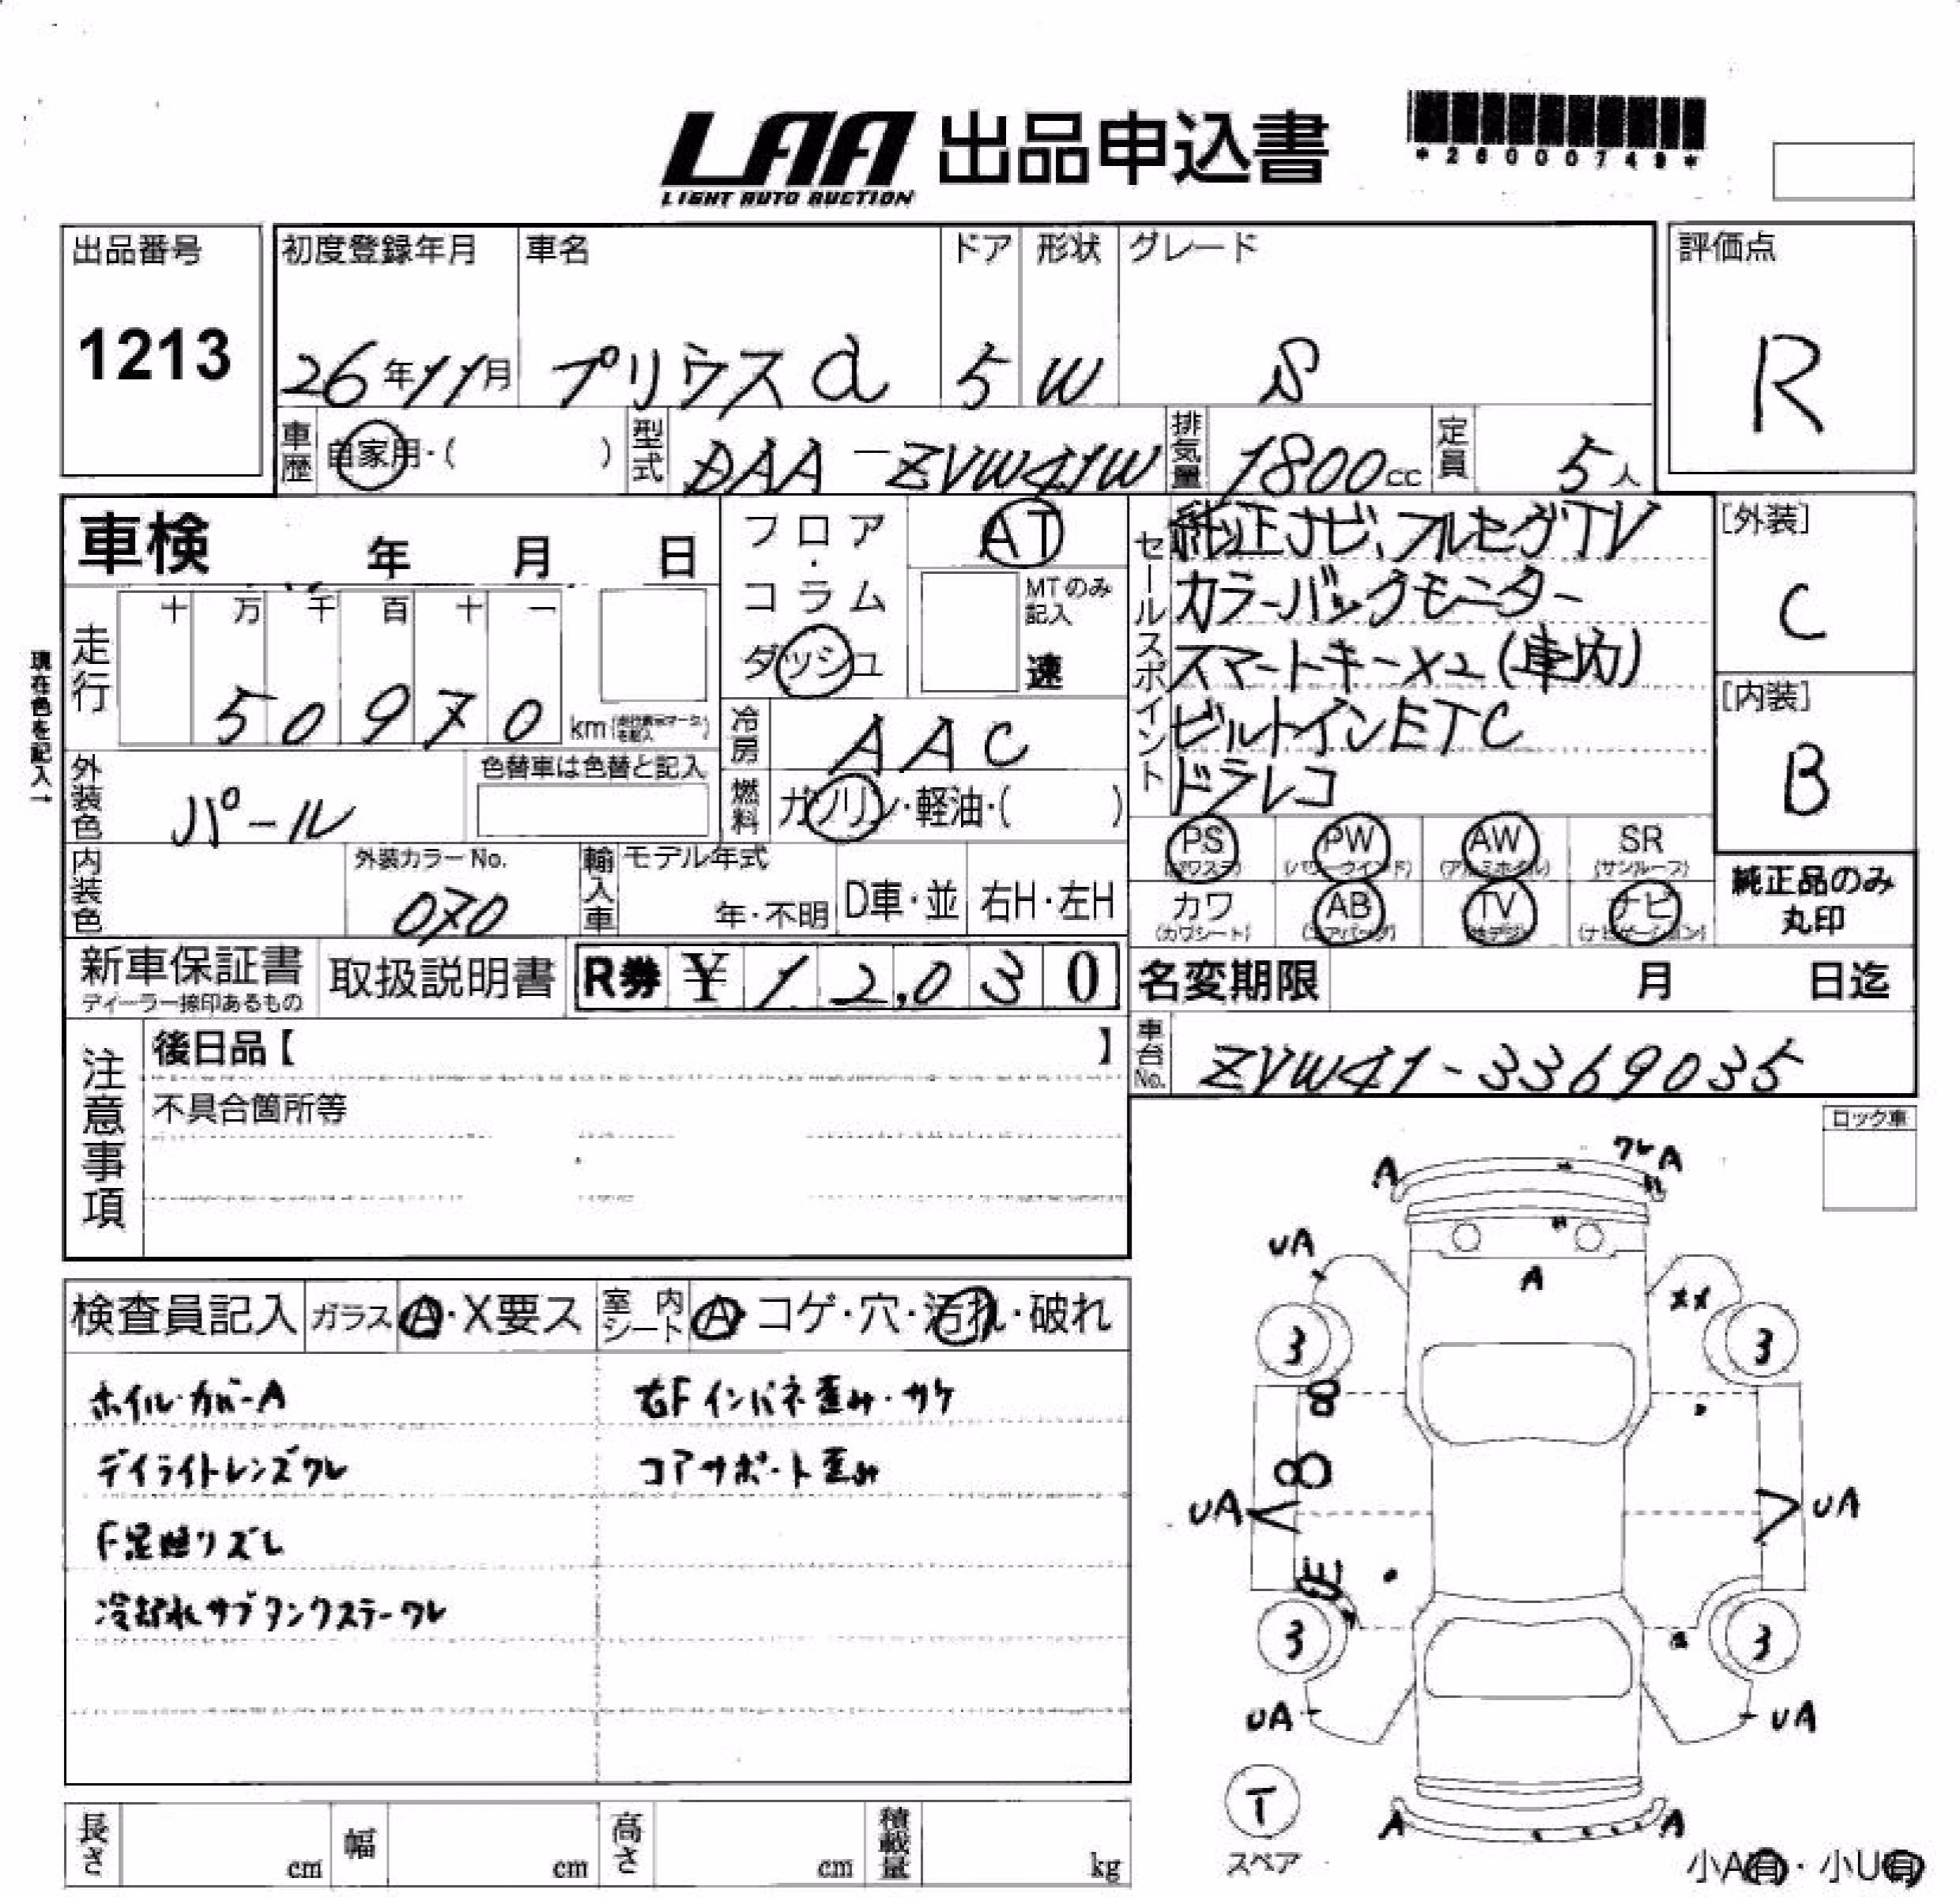 LAA 出品申込書
LIGHT AUTO AUCTION
*26000749*
出品番号 初度登録年月 車名 ドア 形状 グレード 評価点
1213 26年11月 プリウスα 5 W S R
車歴 自家用・( ) 型式 DAA-ZVW41W 排気量 1800cc 定員 5人
車検 年 月 日
フロア・コラム ダッシュ AT
MTのみ記入 速
セールスポイント
純正ナビ、フルセグTV
カラーバックモニター
スマートキーX2(車内)
ビルトインETC
ドラレコ
[外装]
C
[内装]
B
現在色を記入→
走行 十 万 千 百 十 一
50970 km
冷房 AAC
外装色 パール 色替車は色替と記入
燃料 ガソリン・軽油・( )
内装色 外装カラーNo. 070
輸入車 モデル年式 年・不明 D車・並 右H・左H
PS (パワステ) PW (パワーウインド) AW (アルミホイル) SR (サンルーフ)
カワ (カワシート) AB (エアバッグ) TV (地デジ) ナビ (ナビゲーション)
純正品のみ丸印
新車保証書 ディーラー捺印あるもの 取扱説明書 R券 ¥12,030
名変期限 月 日迄
車台No. ZVW41-3369035
注意事項
後日品【 】
不具合箇所等
ロック車
検査員記入 ガラス A・X要ス 室内シート A・コゲ・穴・汚れ・破れ
ホイルカバーA 右Fインパネ歪み・サケ
デイライトレンズワレ コアサポート歪み
F足廻リズレ
冷却水サブタンクステーワレ
A ワレA
UA A XX
3 3
8
8
UA UA
UE
3 3
UA UA
T
スペア
A A
小A有・小U有
長さ cm 幅 cm 高さ cm 積載量 kg